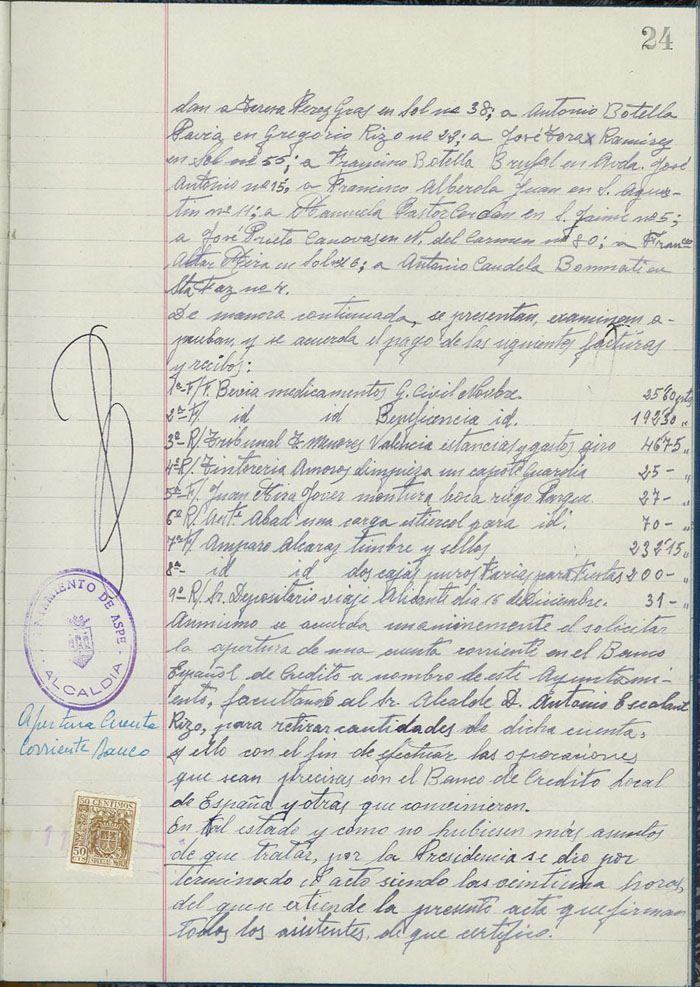 24
dan a Teresa Perez Gras en Sol nº 38; a Antonio Botella
Pavia en Gregorio Rizo nº 22; a José Zorax Ramirez
en Sol nº 55; a Francisco Botella Brufal en Avda. José
Antonio nº 15, a Francisco Alberola Juan en S. Agus-
tin nº 11; a Manuela Pastor Cerdan en S. Jaime nº 5;
a José Prieto Canovas en N. del Carmen nº 80; a Franco
Mira en Sol nº 6; a Antonio Candela Bonmati en
Sta Faz nº 4.
De manera continuada, se presentan, examinan a-
prueban, y se acuerda el pago de las siguientes facturas
y recibos:
1ª-F/ F. Bevia medicamentos G. Civil Novbre. 25'80 ptas
2ª-F/ id id Beneficencia id. 192'30 "
3ª-R/ Tribunal T. Menores Valencia estancias y gastos giro 46'75 "
4ª-R/ Tintoreria Amoros limpieza un capote Guardia 25- "
5ª-F/. Juan Mira Jover montura boca riego Parque. 27- "
6ª R/ Antº Abad una carga estiercol para id. 70- "
7ª F/. Amparo Alcaraz timbre y sellos 232'15 "
8ª- id id dos cajas puros Farias para Fiestas 200- "
9ª- R/ Sr. Depositario viaje Alicante dia 15 de Diciembre. 31- "
Asimismo se acuerda unanimemente el solicitar
la apertura de una cuenta corriente en el Banco
Español de Credito a nombre de este Ayuntami-
ento, facultando al Sr. Alcalde D. Antonio Escalant
Rizo, para retirar cantidades de dicha cuenta,
y ello con el fin de efectuar las operaciones
que sean precisas con el Banco de Credito Local
de España y otras que convinieron.
En tal estado y como no hubiesen más asuntos
de que tratar, por la Presidencia se dio por
terminado el acto siendo las veintiuna horas,
del que se extiende la presente acta que firman
todos los asistentes, de que certifico.
AYUNTAMIENTO DE ASPE
ALCALDIA
Apertura Cuenta
Corriente Banco
50 CENTIMOS
50
CTS